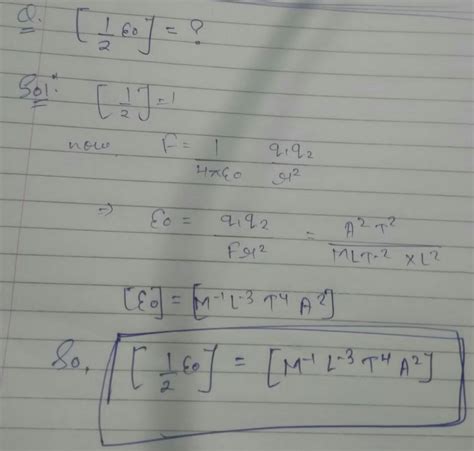 Q. [1/2 ε0] = ?
Sol: [1/2] = 1
now, F = 1/4πε0 q1q2/r²
⇒ ε0 = q1q2/Fr² = A²T²/MLT-² × L²
[ε0] = [M-¹ L-³ T⁴ A²]
So, [1/2 ε0] = [M-¹ L-³ T⁴ A²]